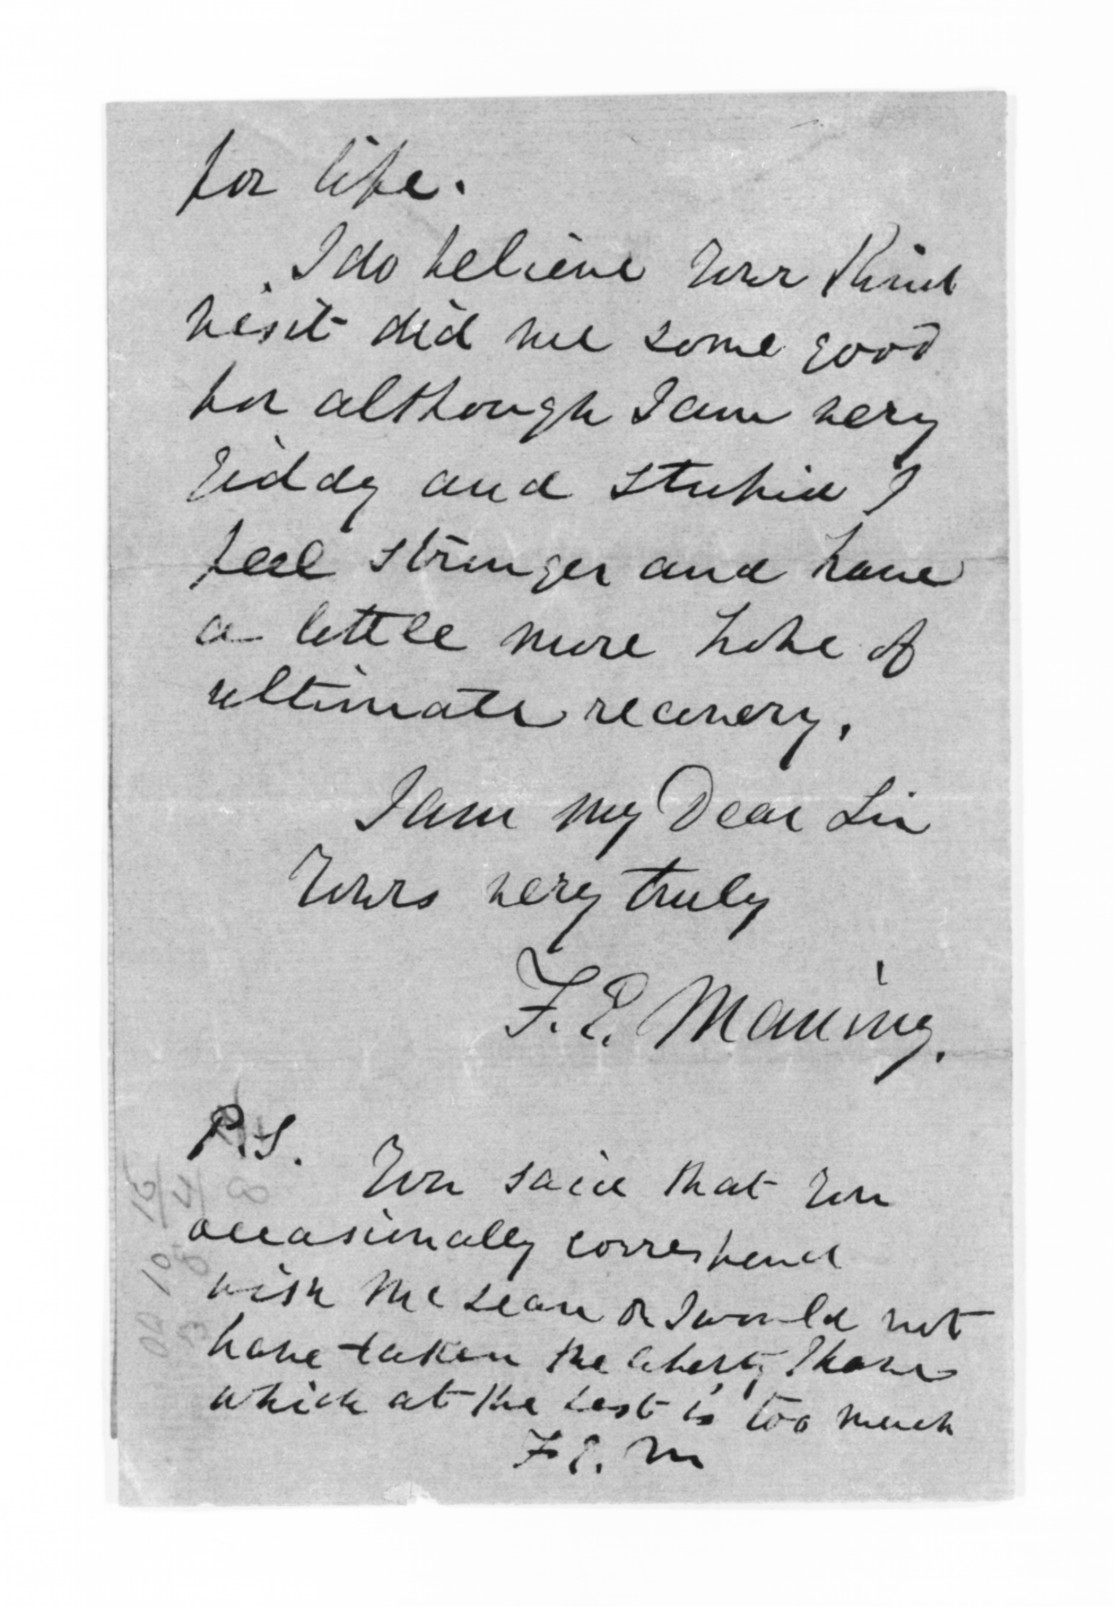 for life.
I do believe your kind
visit did me some good
for although I am very
giddy and stupid I
feel stronger and have
a little more hope of
ultimate recovery.
I am my Dear Sir
Yours very truly
F. E. Maning.
P.S. You said that you
occasionally correspond
with McLean or I would not
have taken the liberty I have
which at the best is too much
F E. M